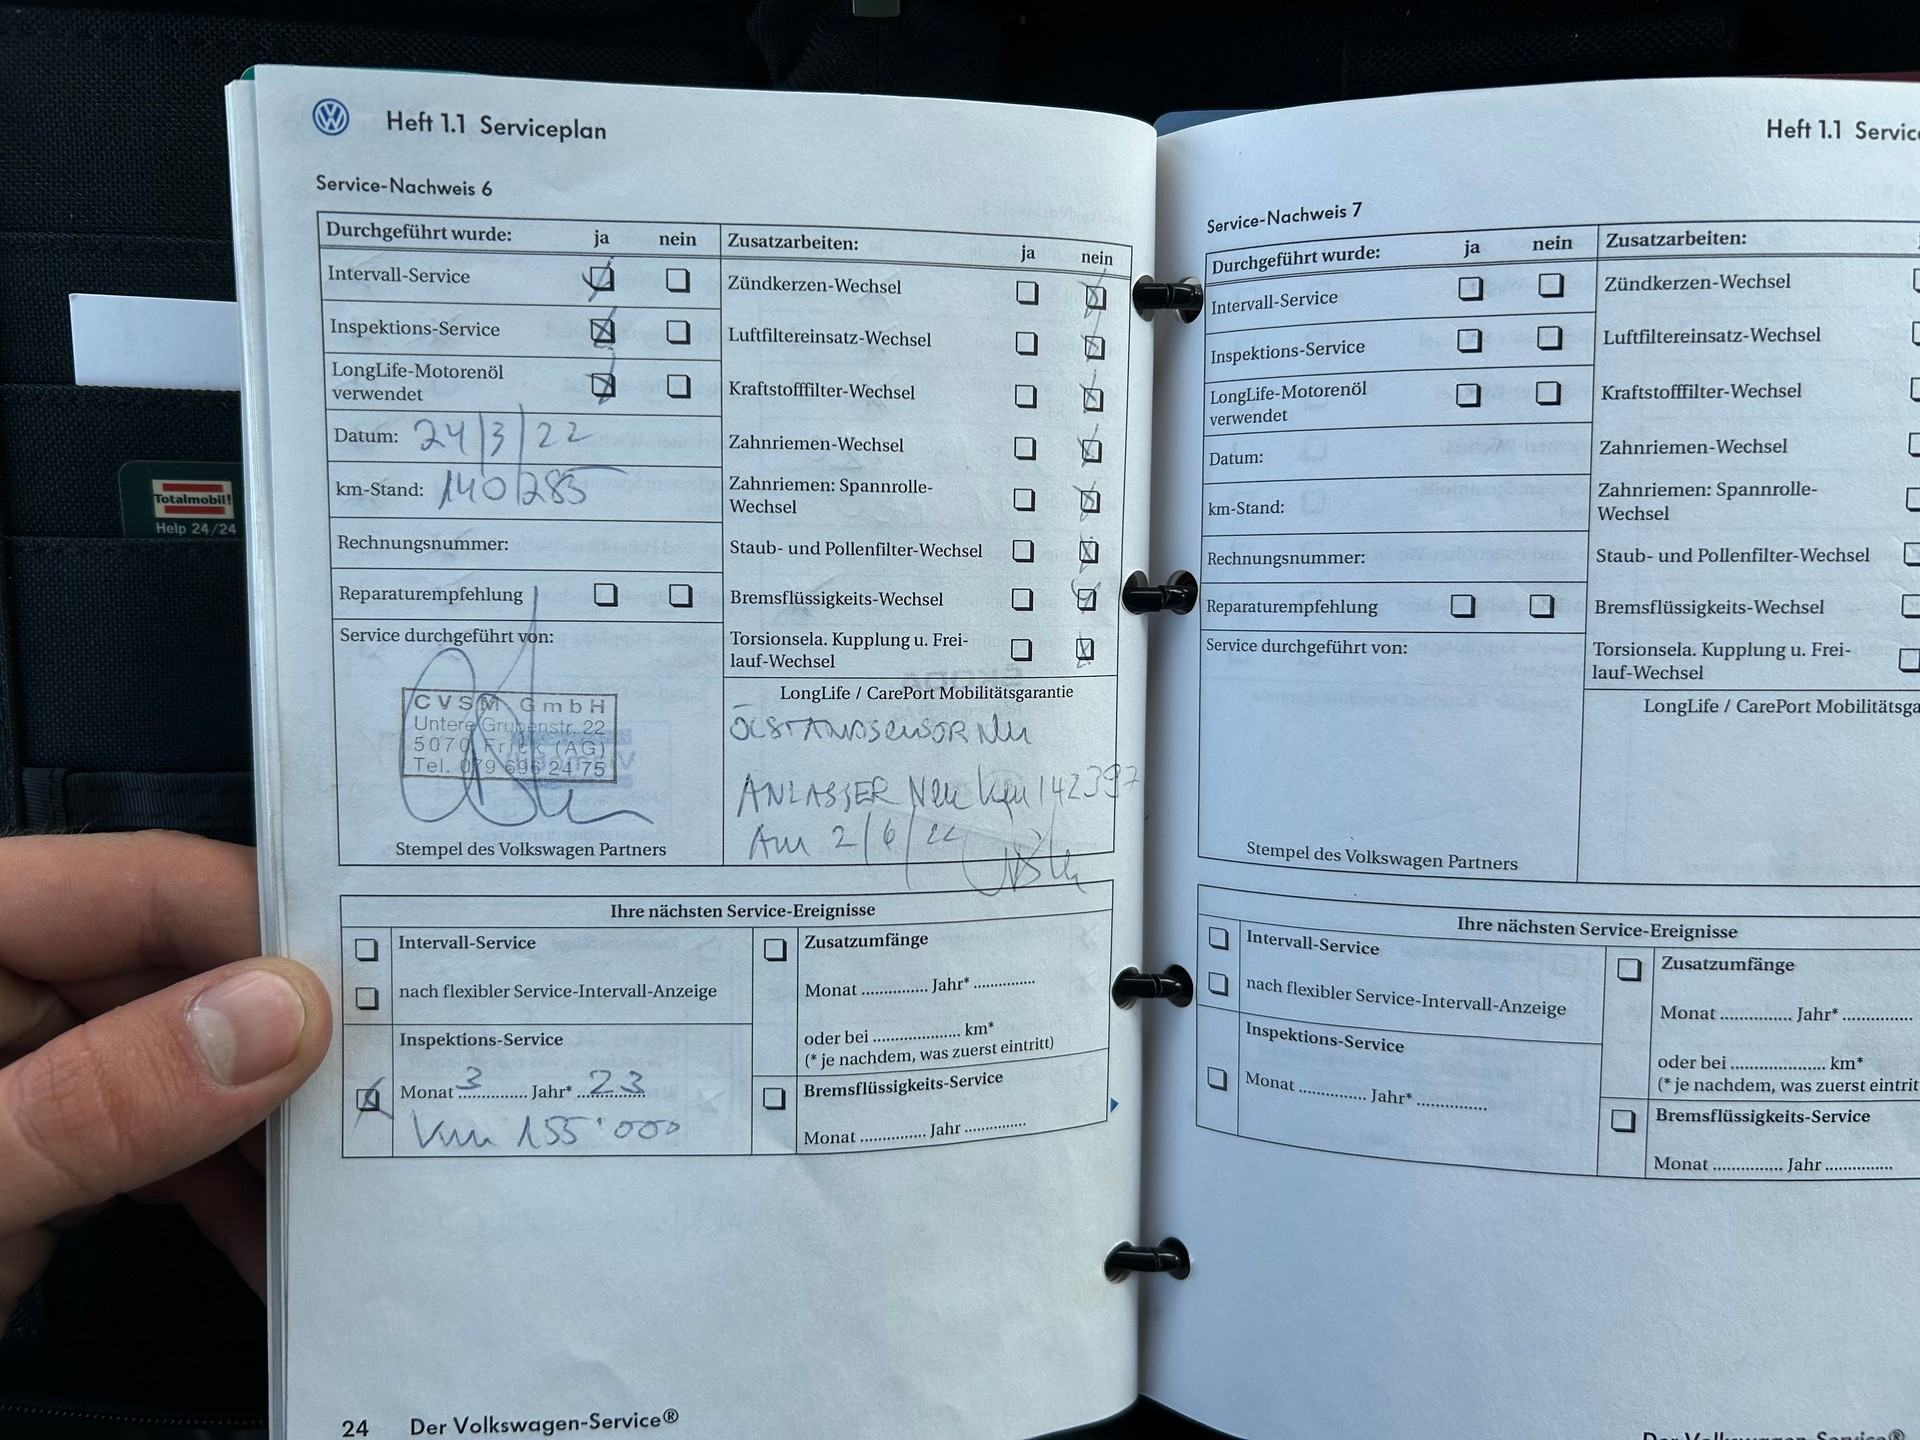 Heft 1.1 Serviceplan
Service-Nachweis 6
Durchgeführt wurde: ja nein
Intervall-Service
Inspektions-Service
LongLife-Motorenöl
verwendet
Datum: 24/3/22
km-Stand: 140/285
Rechnungsnummer:
Reparaturempfehlung
Service durchgeführt von:
CVSM GmbH
Untere Grubenstr. 22
5070 Frick (AG)
Tel. 079 696 24 75
Stempel des Volkswagen Partners
Zusatzarbeiten: ja nein
Zündkerzen-Wechsel
Luftfiltereinsatz-Wechsel
Kraftstofffilter-Wechsel
Zahnriemen-Wechsel
Zahnriemen: Spannrolle-
Wechsel
Staub- und Pollenfilter-Wechsel
Bremsflüssigkeits-Wechsel
Torsionsela. Kupplung u. Frei-
lauf-Wechsel
LongLife / CarePort Mobilitätsgarantie
ÖLSTANDSENSOR Neu
ANLASSER Neu km 142397
Am 2/6/22
Ihre nächsten Service-Ereignisse
Intervall-Service
nach flexibler Service-Intervall-Anzeige
Inspektions-Service
Monat 3 Jahr* 23
km 155'000
Zusatzumfänge
Monat .............. Jahr* .............
oder bei .................... km*
(* je nachdem, was zuerst eintritt)
Bremsflüssigkeits-Service
Monat .............. Jahr ..............
24 Der Volkswagen-Service®
Totalmobil!
Help 24/24
Heft 1.1
Service-Nachweis 7
Durchgeführt wurde: ja nein
Intervall-Service
Inspektions-Service
LongLife-Motorenöl
verwendet
Datum:
km-Stand:
Rechnungsnummer:
Reparaturempfehlung
Service durchgeführt von:
Stempel des Volkswagen Partners
Zusatzarbeiten:
Zündkerzen-Wechsel
Luftfiltereinsatz-Wechsel
Kraftstofffilter-Wechsel
Zahnriemen-Wechsel
Zahnriemen: Spannrolle-
Wechsel
Staub- und Pollenfilter-Wechsel
Bremsflüssigkeits-Wechsel
Torsionsela. Kupplung u. Frei-
lauf-Wechsel
LongLife / CarePort
Ihre nächsten Service-Ereignisse
Intervall-Service
nach flexibler Service-Intervall-Anzeige
Inspektions-Service
Monat .............. Jahr* ..............
Zusatzumfänge
Monat .............. Jahr* ..............
oder bei .................... km*
(* je nachdem, was zuerst
Bremsflüssigkeits-Service
Monat .............. Jahr ..............